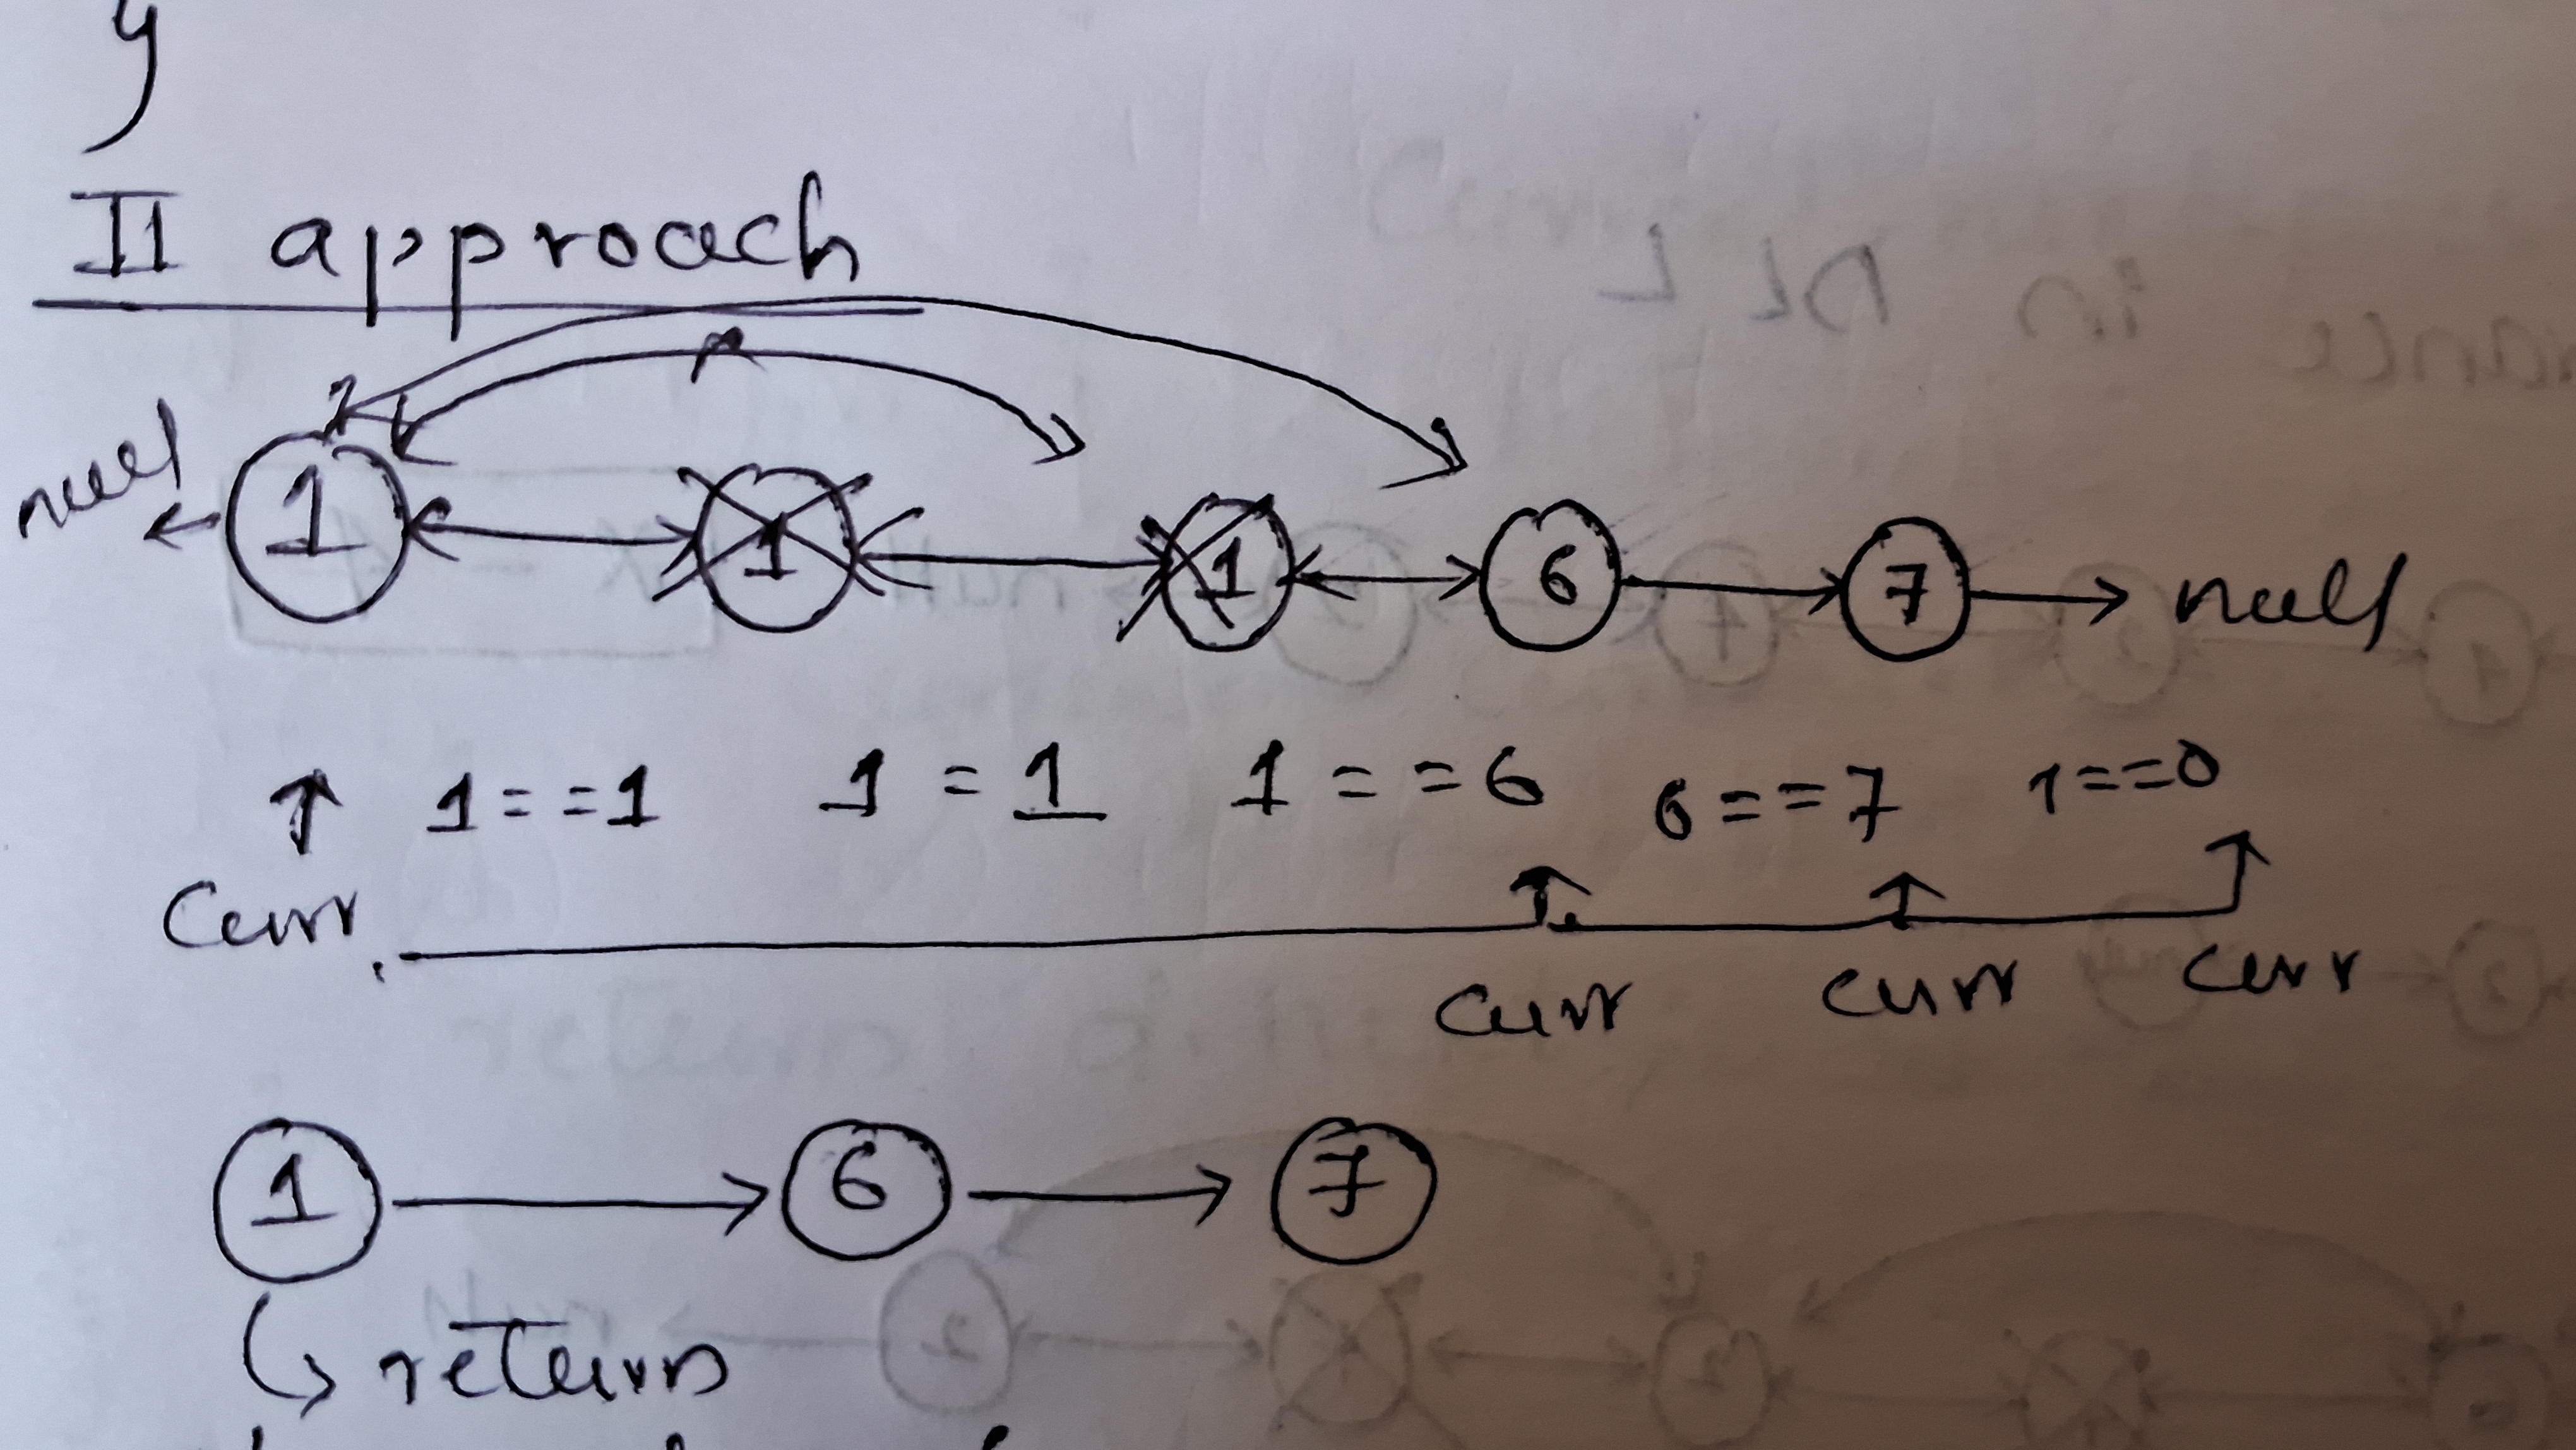 }
II approach
null
1 1 1 6 7 null
1==1 1=1 1==6 6==7 7==0
Curr Curr Curr Curr
1 6 7
return